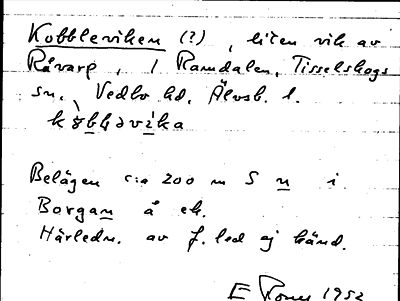 Kobbleviken (?), liten vik av
Råvarp, i Ramdalen, Tisselskogs
sn., Vedbo hd, Älvsb. l.
Belägen c:a 200 m S n i
Borgan å ek.
Härledn. av f. led ej känd.
1952